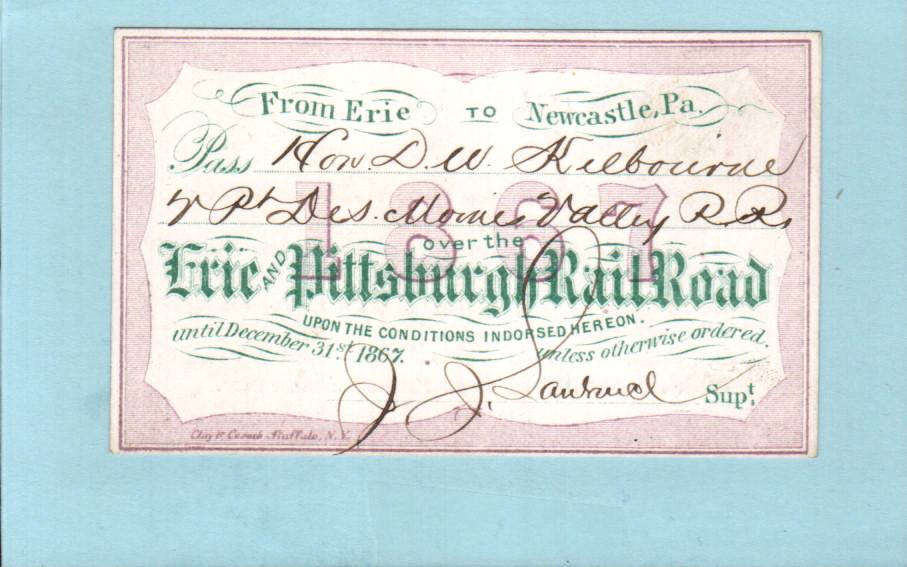 From Erie TO Newcastle, Pa.
Pass Hon. D. W. Kilbourne
V Pt Des. Moines Valley R. R.
1867
over the
Erie AND Pittsburgh Rail Road
UPON THE CONDITIONS INDORSED HEREON.
until December 31st. 1867. unless otherwise ordered.
J. J. Lawrence Supt.
Buffalo, N.Y.